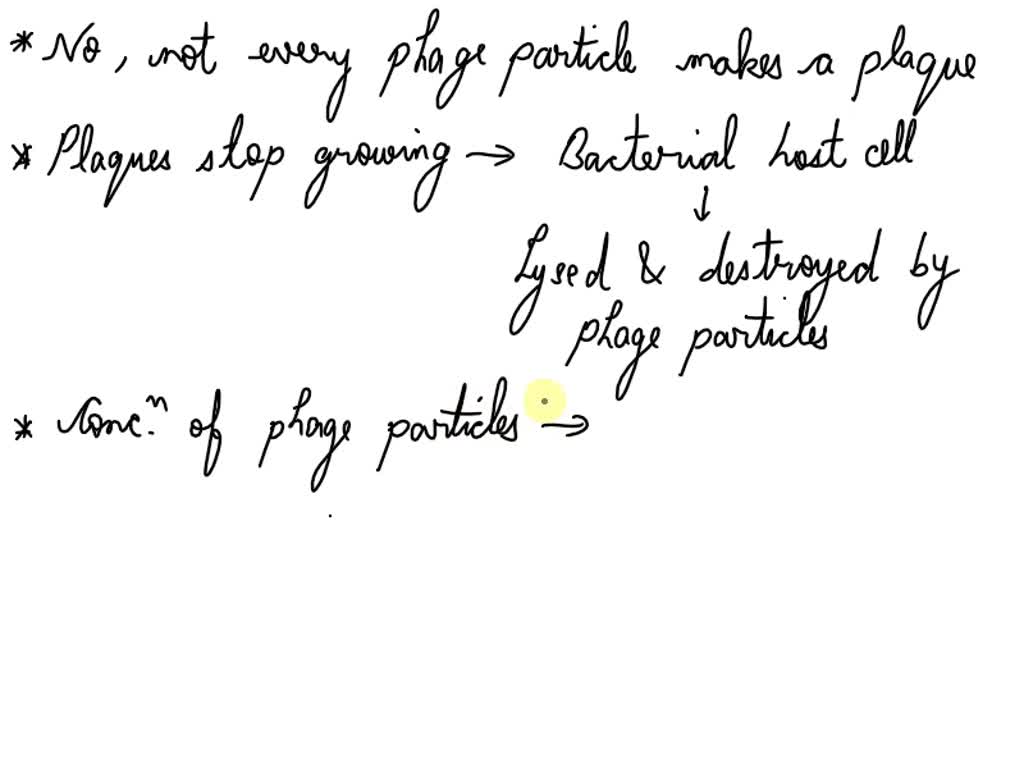 * No, not every phage particle makes a plaque
* Plaques stop growing → Bacterial host cell
↓
Lysed & destroyed by
phage particles
* Concⁿ. of phage particles →